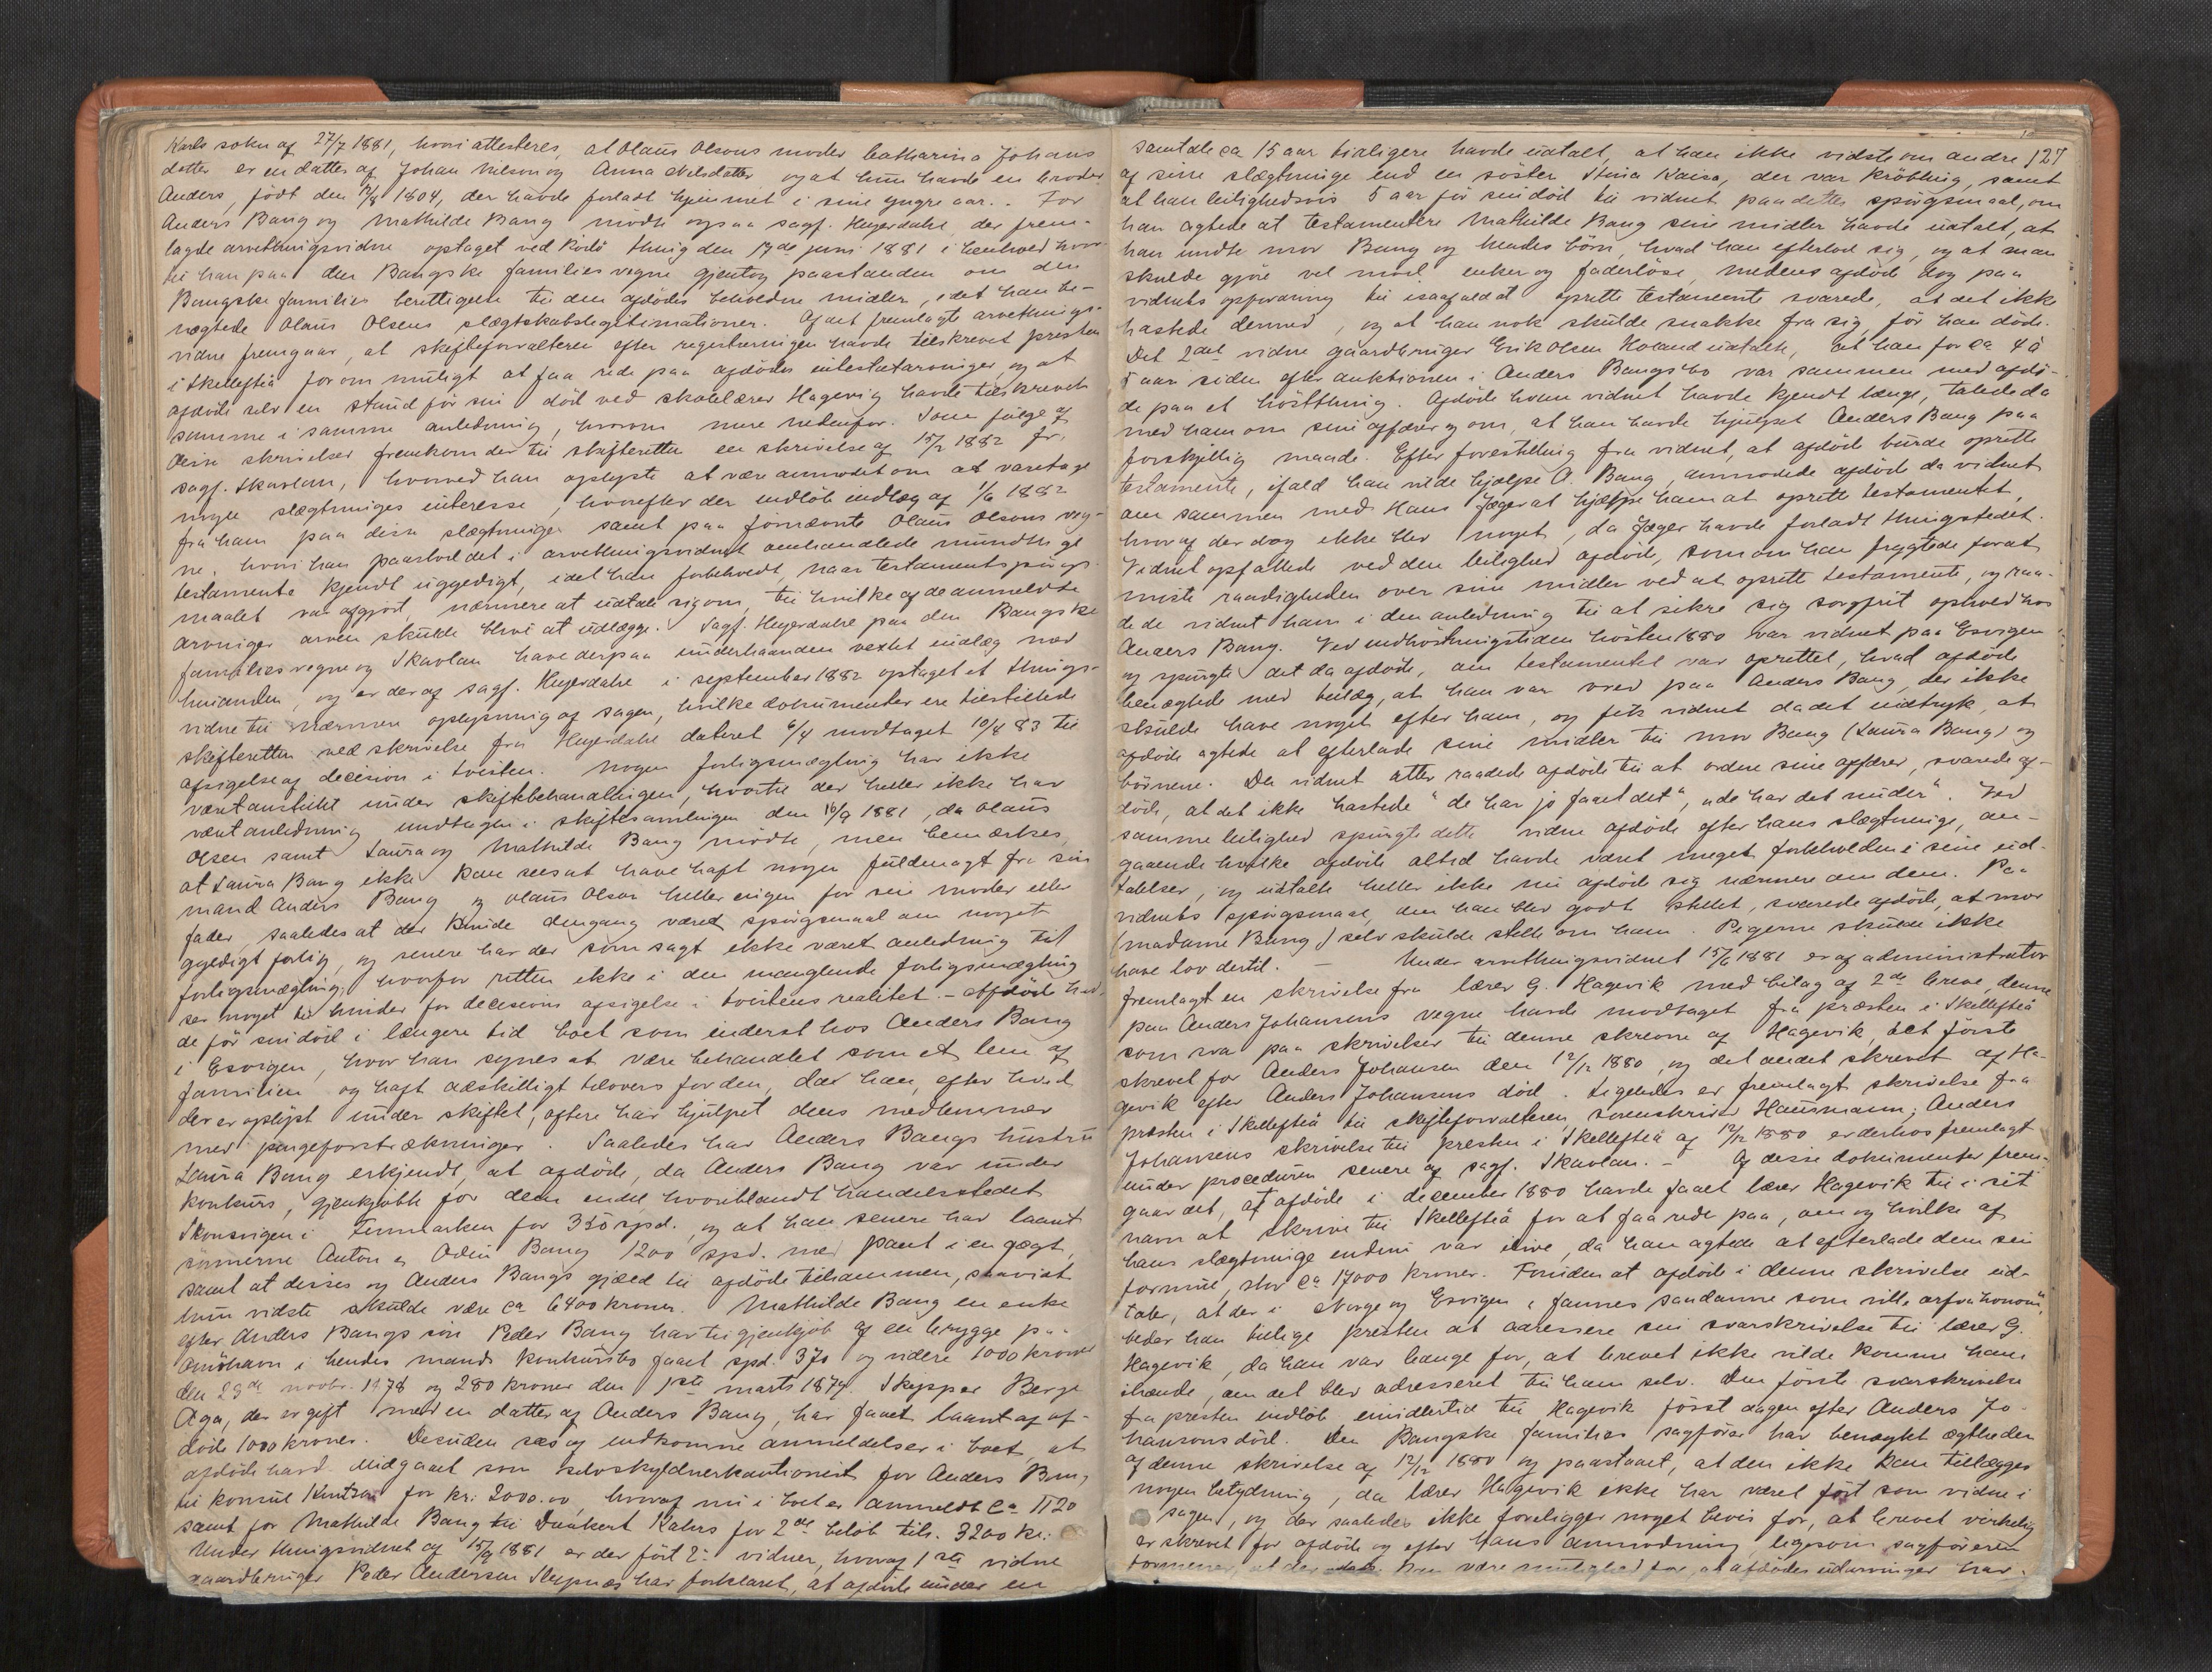 Karls sokn af 27/7 1881, hvori attesteres, at Olaus Olsons moder Catharina Johans
datter er en datter af Johan Nilson og Anna Nilsdatter og at hun havde en broder
Anders, födt den 12/8 1804, der havde forladt hjemmet i sine yngre aar. - For
Anders Bang og Mathilde Bang mödte ogsaa sagf. Heyerdahl, der frem-
lagde arvethingsvidne optaget ved Rödö thing den 17de juni 1881 i henhold hvor-
til han paa den Bangske families vegne gjentog paastanden om den
Bangske families berettigelse til den afdödes beholdne midler, idet han be-
nægtede Olaus Olsens slægtskabslegitimationer. Af det fremlagte arvethings-
vidne fremgaar, at skifteforvalteren efter registreringen havde tilskrevet presten
i Skellefteå for om muligt at faa rede paa afdödes intestatarvinger, og at
afdöde selv en stund för sin död ved skolelærer Hagevig havde tilskrevet
samme i samme anledning, hvorom mere nedenfor. Som fölge af
disse skrivelser fremkom der til skifteretten en skrivelse af 15/2 1882 fr.
sagf. Skavlan, hvorved han oplyste at være anmodet om at varetage
nogle slægtninges interesse, hvorefter der indlöb indlæg af 1/6 1882
fra ham paa disse slægtninger samt paa förnævnte Olaus Olsons veg-
ne, hvori han paastod det i arvethingsvidnet omhandlede mundtlige
testamente kjendt ugyldigt, idet han forbeholdt, naar testamentspörgs-
maalet var afgjort, nærmere at udtale sig om, til hvilke af de anmeldte
arvinger arven skulde blive at udlægge. Sagf. Heyerdahl paa den Bangske
families vegne og Skavlan have derpaa underhaanden vexlet indlæg mod
hinanden, og er der af sagf. Heyerdahl i september 1882 optaget et things-
vidne til nærmere oplysning af sagen, hvilke dokumenter ere tilstillede
skifteretten ved skrivelse fra Heyerdahl dateret 6/4 modtaget 10/8 83 til
afsigelse af decision i tvisten. Nogen forligsmægling har ikke
været anstillet under skiftebehandlingen, hvortil der heller ikke har
været anledning undtagen i skiftesamlingen den 16/9 1881, da Olaus
Olsen samt Laura og Mathilde Bang mödte, men bemærkes,
at Laura Bang ikke kan sees at have haft nogen fuldmagt fra sin
mand Anders Bang og Olaus Olson heller ingen for sin moder eller
fader, saaledes at der kunde dengang været spörgsmaal om noget
gyldigt forlig, og senere har der som sagt ikke været anledning til
forligsmægling, hvorfor retten ikke i den manglende forligsmægling
ser noget til hinder for decisions afsigelse i tvistens realitet. - Afdöde hav-
de för sin död i længere tid boet som inderst hos Anders Bang
i Esvigen, hvor han synes at være behandlet som et lem af
familien og haft adskilligt tilovers for den, der han, efter hvad
der er oplyst under skiftet, oftere har hjulpet dens medlemmer
med pengeforstrækninger. Saaledes har Anders Bangs hustru
Laura Bang erkjendt, at afdöde, da Anders Bang var under
konkurs, gjenkjöbte for dem endel, hvoriblandt handelsstedet
Skonsvigen i Finmarken for 350 spd. og at han senere har laant
sönnerne Anton og Odin Bang 1200 spd. med pant i en jægt,
samt at disses og Anders Bangs gjæld til afdöde tilsammen, saavidt
hun vidste skulde være ca 6400 kroner. Mathilde Bang en enke
efter Anders Bangs sön Peder Bang har til gjenkjöb af en brygge paa
Onöhavn i hendes mands konkursbo faaet spd. 370 og videre 1000 kroner
den 23de novbr. 1878 og 280 kroner den 1ste marts 1879. Skipper Berge
Aga, der er gift med en datter af Anders Bang, har faaet laant af af-
döde 1000 kroner. Desuden sees og indkomne anmeldelser i boet, at
afdöde havd. indgaaet som selvskyldnerkautionist for Anders Bang
til konsul Knutzon for kr. 2000.00, hvoraf nu i boet er anmeldt ca 1120
samt for Mathilde Bang til Dunkert Kahrs for 2de belöb tils. 3200 kr.
Under thingsvidnet af 15/9 1881 er der fört 2. vidner, hvoraf 1ste vidne
gaardbruger Peder Andersen Slepnæs har forklaret, at afdöde under en
127
samtale ca 15 aar tidligere havde udtalt, at han ikke vidste om andre
af sine slægtninge end en söster Stina Kaisa, der var kröbling, samt
at han leilighedsvis 5 aar för sin död til vidnet paa dettes spörgsmaal, om
han agtede at testamentere Mathilde Bang sine midler havde udtalt, at
han undte mor Bang og hendes börn, hvad han efterlod sig, og at man
skulde gjöre vel mod enker og faderlöse, medens afdöde dog paa
vidnets opfordring til isaafald at oprette testamente svarede, at det ikke
hastede dermed, og at han nok skulde snakke fra sig, för han döde.
Det 2det vidne gaardbruger Erik Olsen Holand udtalte, at han for ca 4 à
5 aar siden efter auktionen i Anders Bangs bo var sammen med afdö-
de paa et höstthing. Afdöde hvem vidnet havde kjendt længe, talede da
med ham om sine affærer og om, at han havde hjulpet Anders Bang paa
forskjellig maade. Efter forestilling fra vidnet, at afdöde burde oprette
testamente, ifald han vilde hjælpe A. Bang, anmodede afdöde da vidnet
om sammen med Hans Jæger at hjælpe ham at oprette testamentet,
hvoraf der dog ikke blev noget, da Jæger havde forladt thingstedet.
Vidnet opfattede ved den leilighed afdöde, som om han frygtede for at
miste raadigheden over sine midler ved at oprette testamente, og raa-
dede vidnet ham i den anledning til at sikre sig sorgfrit ophold hos
Anders Bang. Ved indhöstningstiden hösten 1880 var vidnet paa Esvigen
og spurgte det da afdöde, om testamentet var oprettet, hvad afdöde
benægtede med tillæg, at han var vred paa Anders Bang, der ikke
skulde have noget efter ham, og fik vidnet da det indtryk, at
afdöde agtede at efterlade sine midler til mor Bang (Laura Bang) og
börnene. Da vidnet atter raadede afdöde til at ordne sine affærer, svarede af-
döde, at det ikke hastede "de har jo faaet det", "de har det under". Ved
samme leilighed spurgte dette vidne afdöde efter hans slægtninge, an-
gaaende hvilke afdöde altid havde været meget forbeholden i sine ud-
talelser, og udtalte heller ikke nu afdöde sig nærmere om dem. Paa
vidnets spörgsmaal, om han blev godt stellet, svarede afdöde, at mor
(madame Bang) selv skulde stelle om ham. Pigerne skulde ikke
have lov dertil. - Under arvethingsvidnet 15/6 1881 er af administrator
fremlagt en skrivelse fra lærer G. Hagevik med bilag af 2de breve, denne
paa Anders Johansens vegne havde modtaget fra præsten i Skellefteå
som svar paa skrivelser til denne skrevne af Hagevik, det förste
skrevet for Anders Johansen den 12/12 1880, og det andet skrevet af Ha-
gevik efter Anders Johansens död. Ligeledes er fremlagt skrivelse fra
presten i Skellefteå til skifteforvalteren, sorenskriver Hausmann; Anders
Johansens skrivelse til presten i Skellefteå af 12/12 1880 er derhos fremlagt
under proceduren senere af sagf. Skavlan. - Af disse dokumenter frem-
gaar det, at afdöde i december 1880 havde faaet lærer Hagevik til i sit
navn at skrive til Skellefteå for at faa rede paa, om og hvilke af
hans slægtninge endnu var ilive, da han agtede at efterlade dem sin
formue, stor ca 17000 kroner. Foruden at afdöde i denne skrivelse ud-
taler, at der i Norge og Esvigen "fannes saadanne som ville arfva honom",
beder han tillige presten at adressere sin svarskrivelse til lærer G.
Hagevik, da han var bange for, at brevet ikke vilde komme ham
ihænde, om det blev adresseret til ham selv. Den förste svarskrivelse
fra presten indlöb imidlertid til Hagevik först dagen efter Anders Jo-
hansons död. Den Bangske families sagförer har benægtet ægtheden
af denne skrivelse af 12/12 1880 og paastaaet, at den ikke kan tillægges
nogen betydning, da lærer Hagevik ikke har været fört som vidne i
sagen, og der saaledes ikke foreligger noget bevis for, at brevet virkelig
er skrevet for afdöde og efter hans anmodning ligesom sagföreren
formener, at der kan være mulighed for, at afdödes udarvinger har